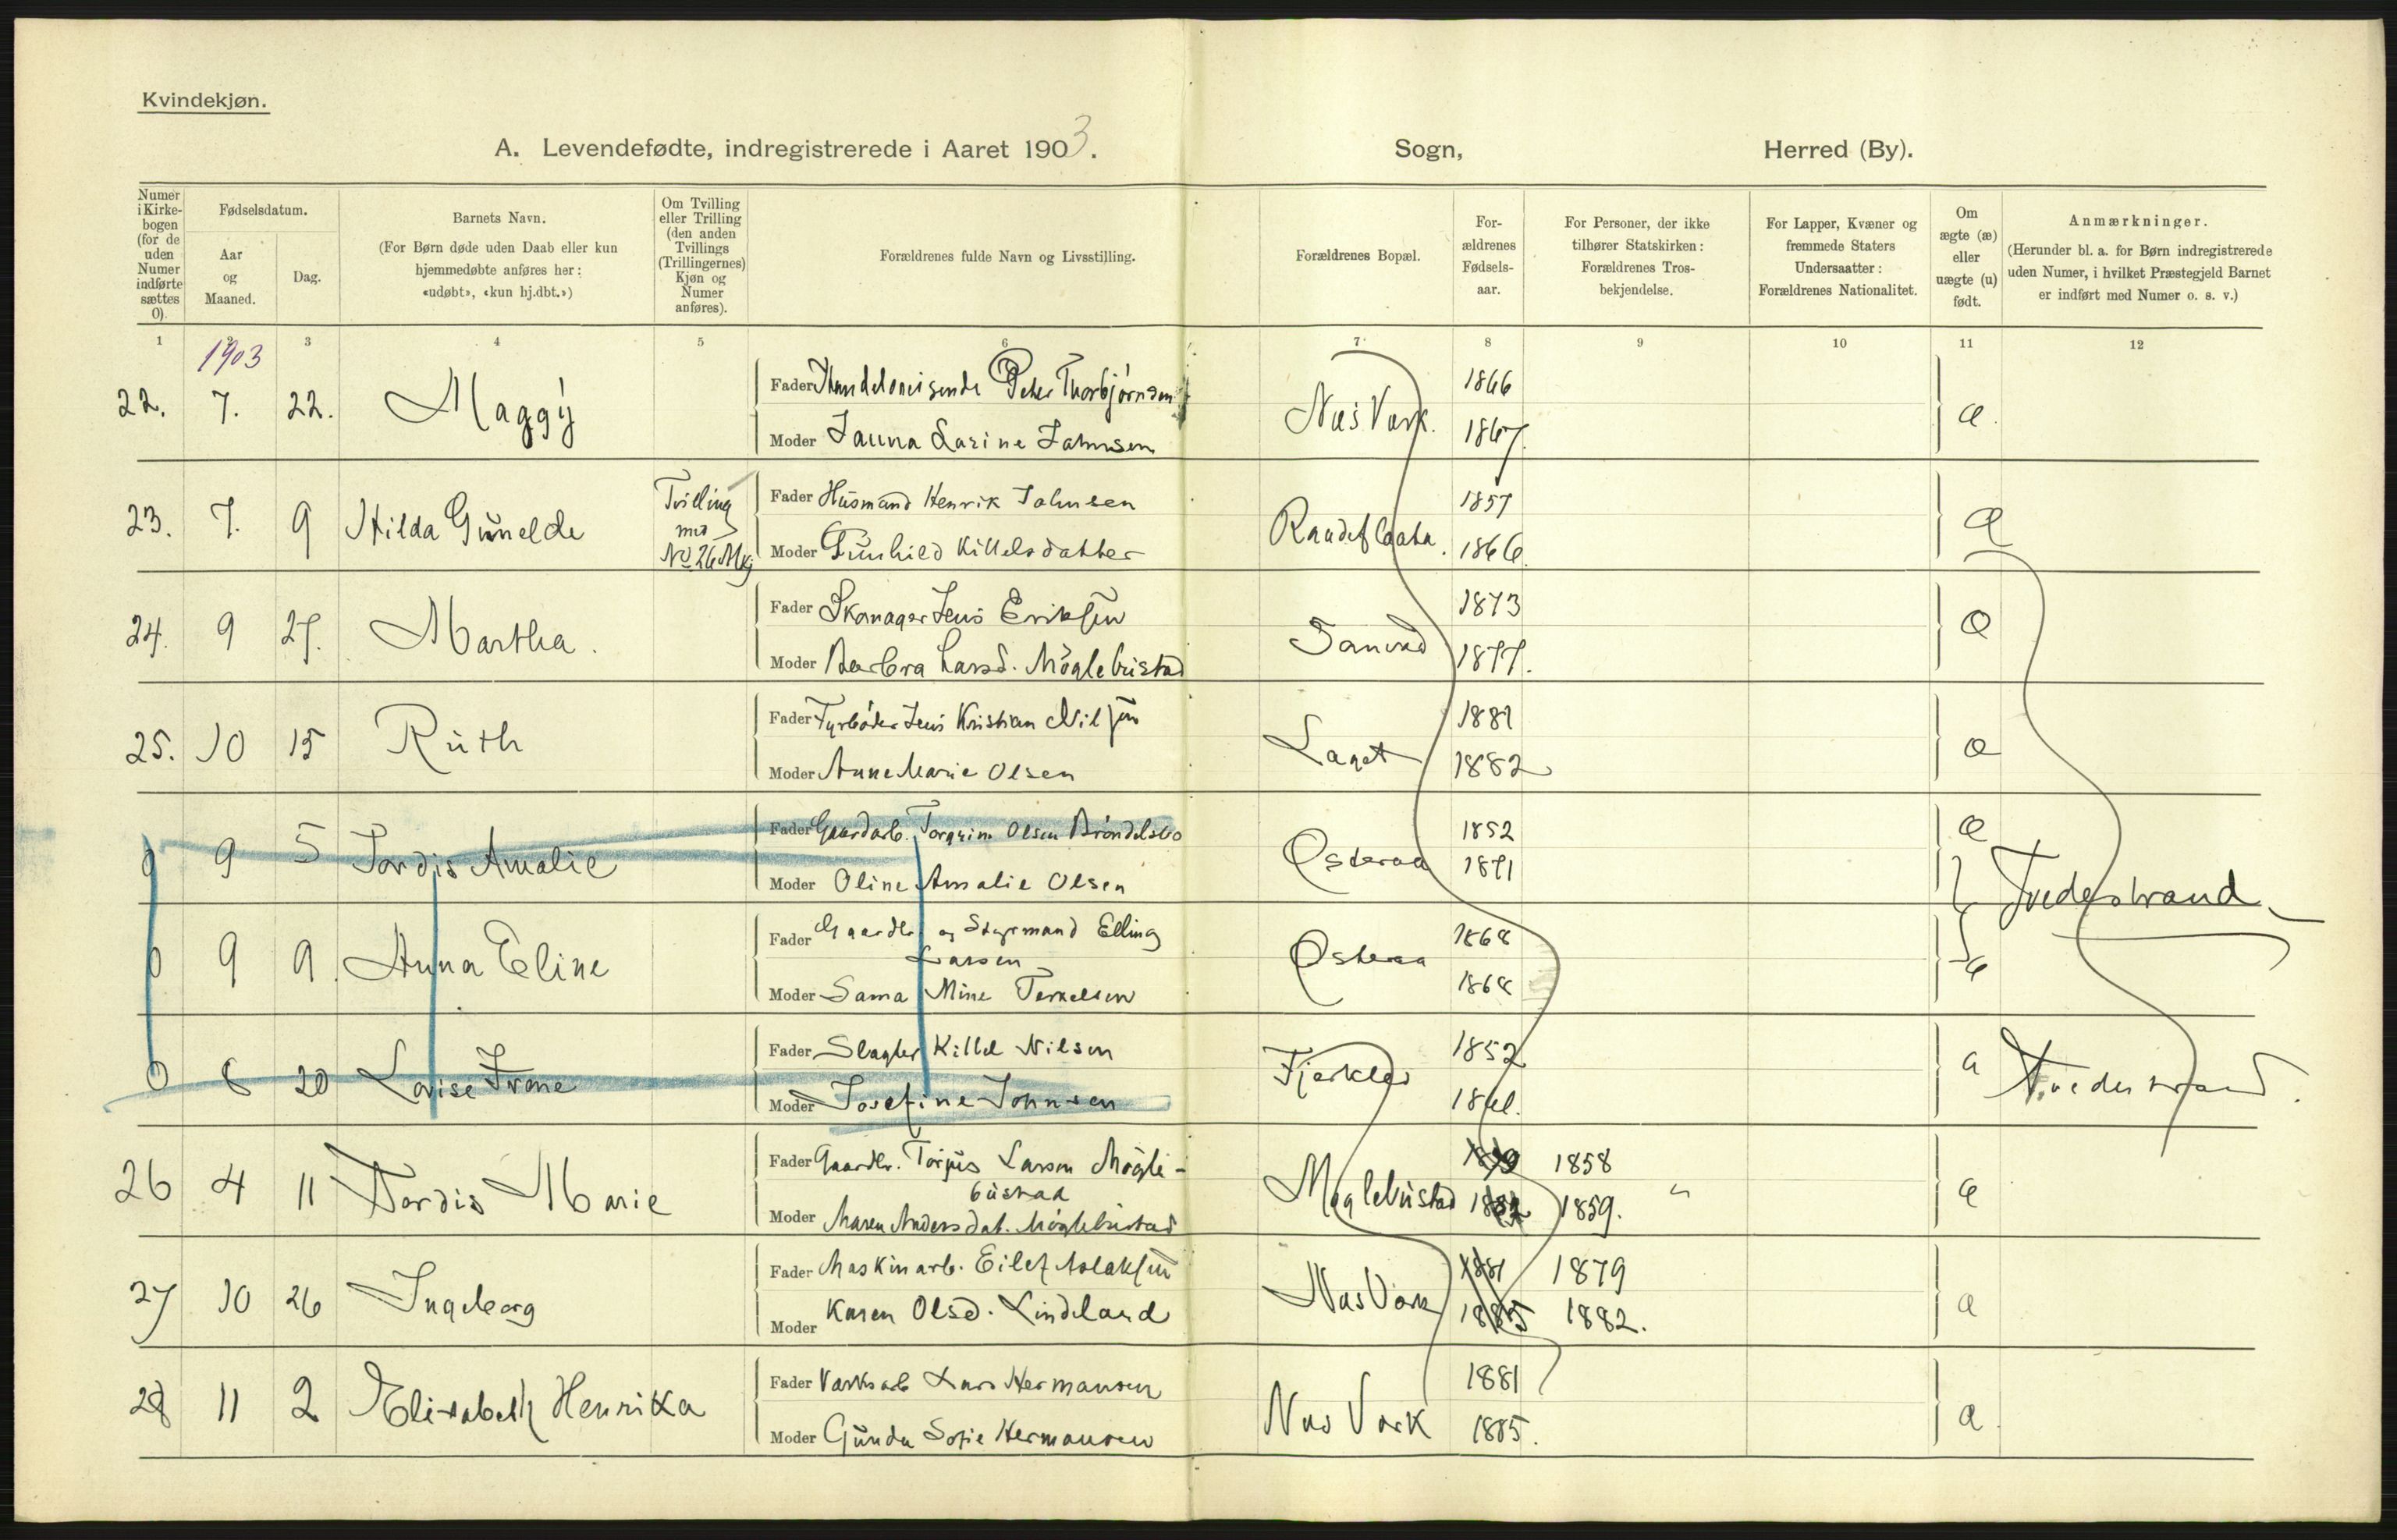 Kvindekjøn.
A. Levendefødte, indregistrerede i Aaret 1903. Sogn, Herred (By).
Numer i Kirkebogen (for de uden Numer indførte sættes 0).
Fødselsdatum.
Aar og Maaned.
Dag.
Barnets Navn.
(For Børn døde uden Daab eller kun hjemmedøbte anføres her: «udøbt», «kun hj.dbt.»)
Om Tvilling eller Trilling (den anden Tvillings (Trillingernes) Kjøn og Numer anføres).
Forældrenes fulde Navn og Livsstilling.
Forældrenes Bopæl.
Forældrenes Fødselsaar.
For Personer, der ikke tilhører Statskirken: Forældrenes Trosbekjendelse.
For Lapper, Kvæner og fremmede Staters Undersaatter: Forældrenes Nationalitet.
Om ægte (æ) eller uægte (u) født.
Anmærkninger.
(Herunder bl. a. for Børn indregistrerede uden Numer, i hvilket Præstegjeld Barnet er indført med Numer o. s. v.)
1 2 3 4 5 6 7 8 9 10 11 12
1903
22. 7. 22. Maggy Fader Handelsreisende Peter Thorbjørnsen Næs Værk. 1866 æ.
Moder Janna Larine Jahnsen 1867.
23. 7. 9 Hilda Gunelde Tvilling med No 26 Mkj Fader Husmand Henrik Johnsen 1857 æ
Moder Gunhild Kittelsdatter 1866.
24. 9 27. Martha. Fader Skomager Jens Eriksen 1873 æ
Moder Barbra Larsd. Møglebustad 1877.
25. 10 15 Ruth Fader Fyrbøder Jens Kristian Nilsen Laget 1881 æ
Moder Anne Marie Olsen 1882
0 9 5 Tordis Amalie Fader Gaardarb. Torgrim Olsen Brøndelsbo Østeraa 1852 æ
Moder Oline Amalie Olsen 1871
Tvedestrand
0 9 9. Anna Eline Fader Gaardbr. og Styrmand Elling Østeraa 1868 æ
Larsen
Moder Sama Mine Terkelsen 1868
0 6 20 Lovise Irene Fader Slagter Kittel Nilsen 1852 æ Tvedestrand.
Moder Josefine Johnsen
26 4 11 Tordis Marie Fader Gaardbr. Torjus Larsen Møgle- Møglebustad 1858 æ
bustad
Moder Maren Andersdat. Møglebustad 1859. "
27 10 26 Ingeborg Fader Maskinarb. Eilef Aslaksen Næs Værk 1881 1879 æ
Moder Karen Olsd. Lindland 1885 1882.
28 11 2 Elisabeth Henrika Fader Værksarb Lars Hermansen Næs Værk 1881 æ.
Moder Gunda Sofie Hermansen 1885.